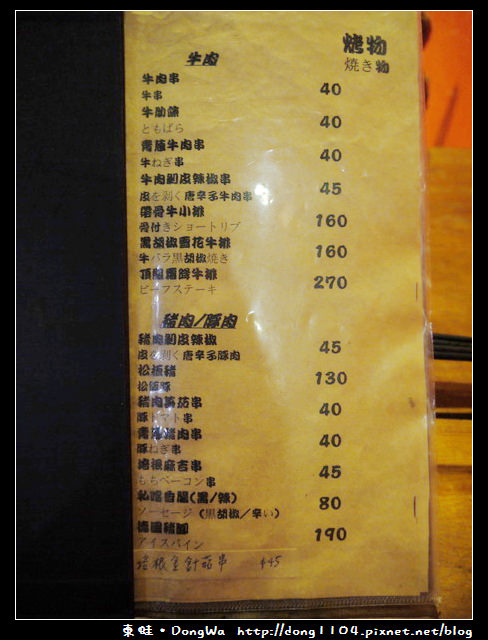 烤物
焼き物
牛肉
牛肉串 40
牛串
牛肋條 40
ともばら
青蔥牛肉串 40
牛ねぎ串
牛肉剝皮辣椒串 45
皮を剥く唐辛子牛肉串
帶骨牛小排 160
骨付きショートリブ
黑胡椒雪花牛排 160
牛バラ黒胡椒焼き
頂級嫩鮮牛排 270
ビーフステーキ
豬肉/豚肉
豬肉剝皮辣椒 45
皮を剥く唐辛子豚肉
松板豬 130
松阪豚
豬肉蕃茄串 40
豚トマト串
青蔥豬肉串 40
豚ねぎ串
培根麻吉串 45
もちベーコン串
私房香腸(黑/辣) 80
ソーセージ (黒胡椒/辛い)
德國豬腳 190
アイスバイン
培根金針菇串 $45
東蛙・DongWa http://dong1104.pixnet.net/blog